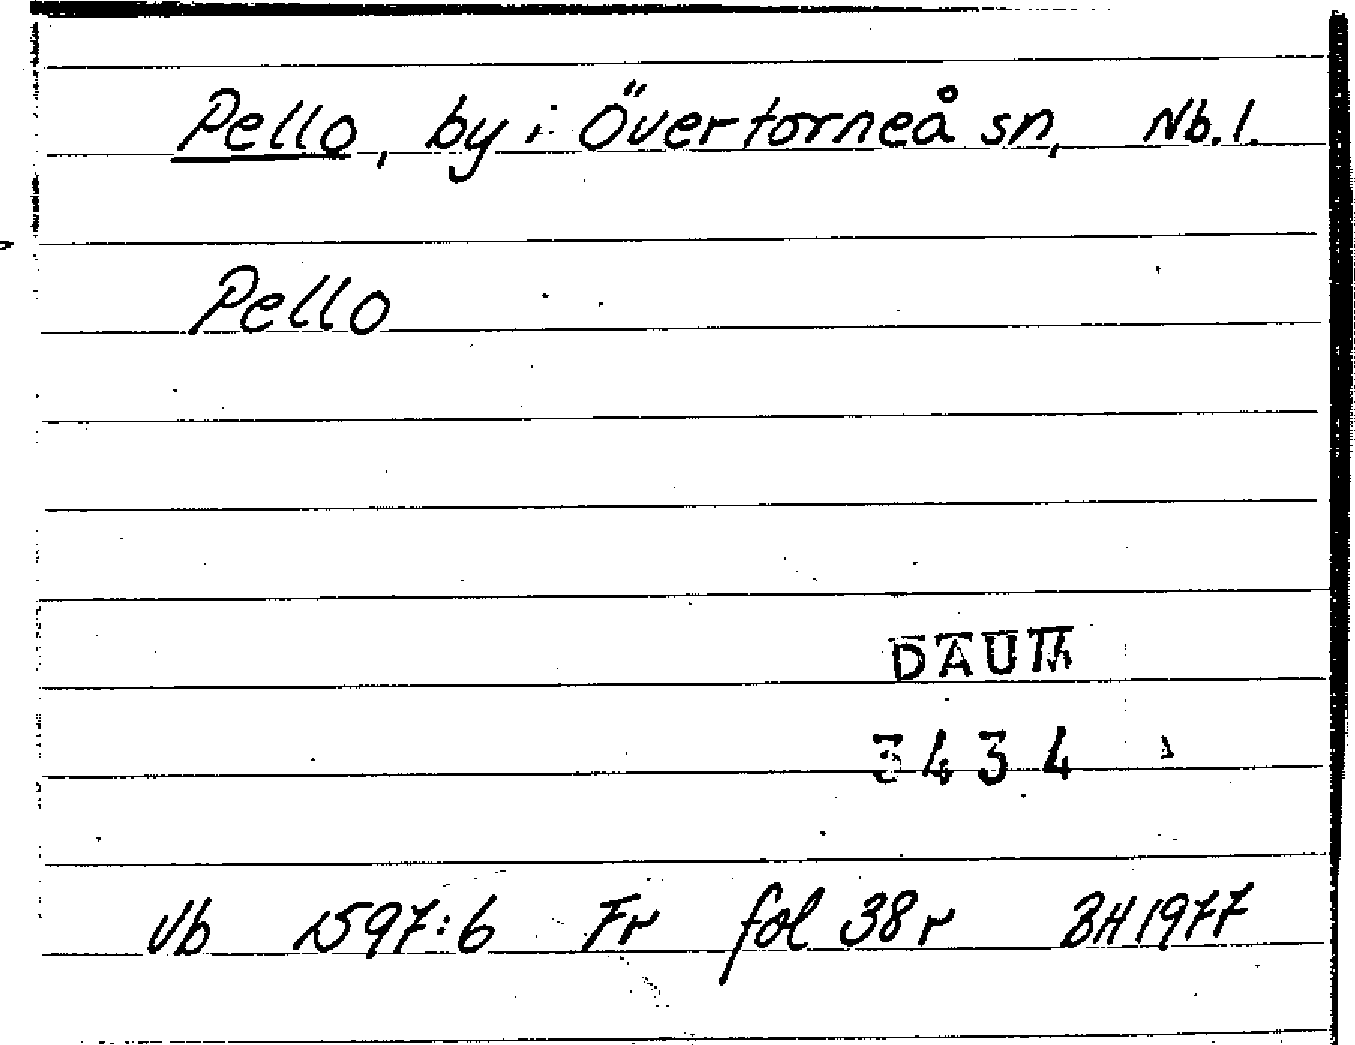 Pello, by i Övertorneå sn, Nb.l.
Pello
DAUM
3434
Vb 1597:6 Fr fol 38r BH1977